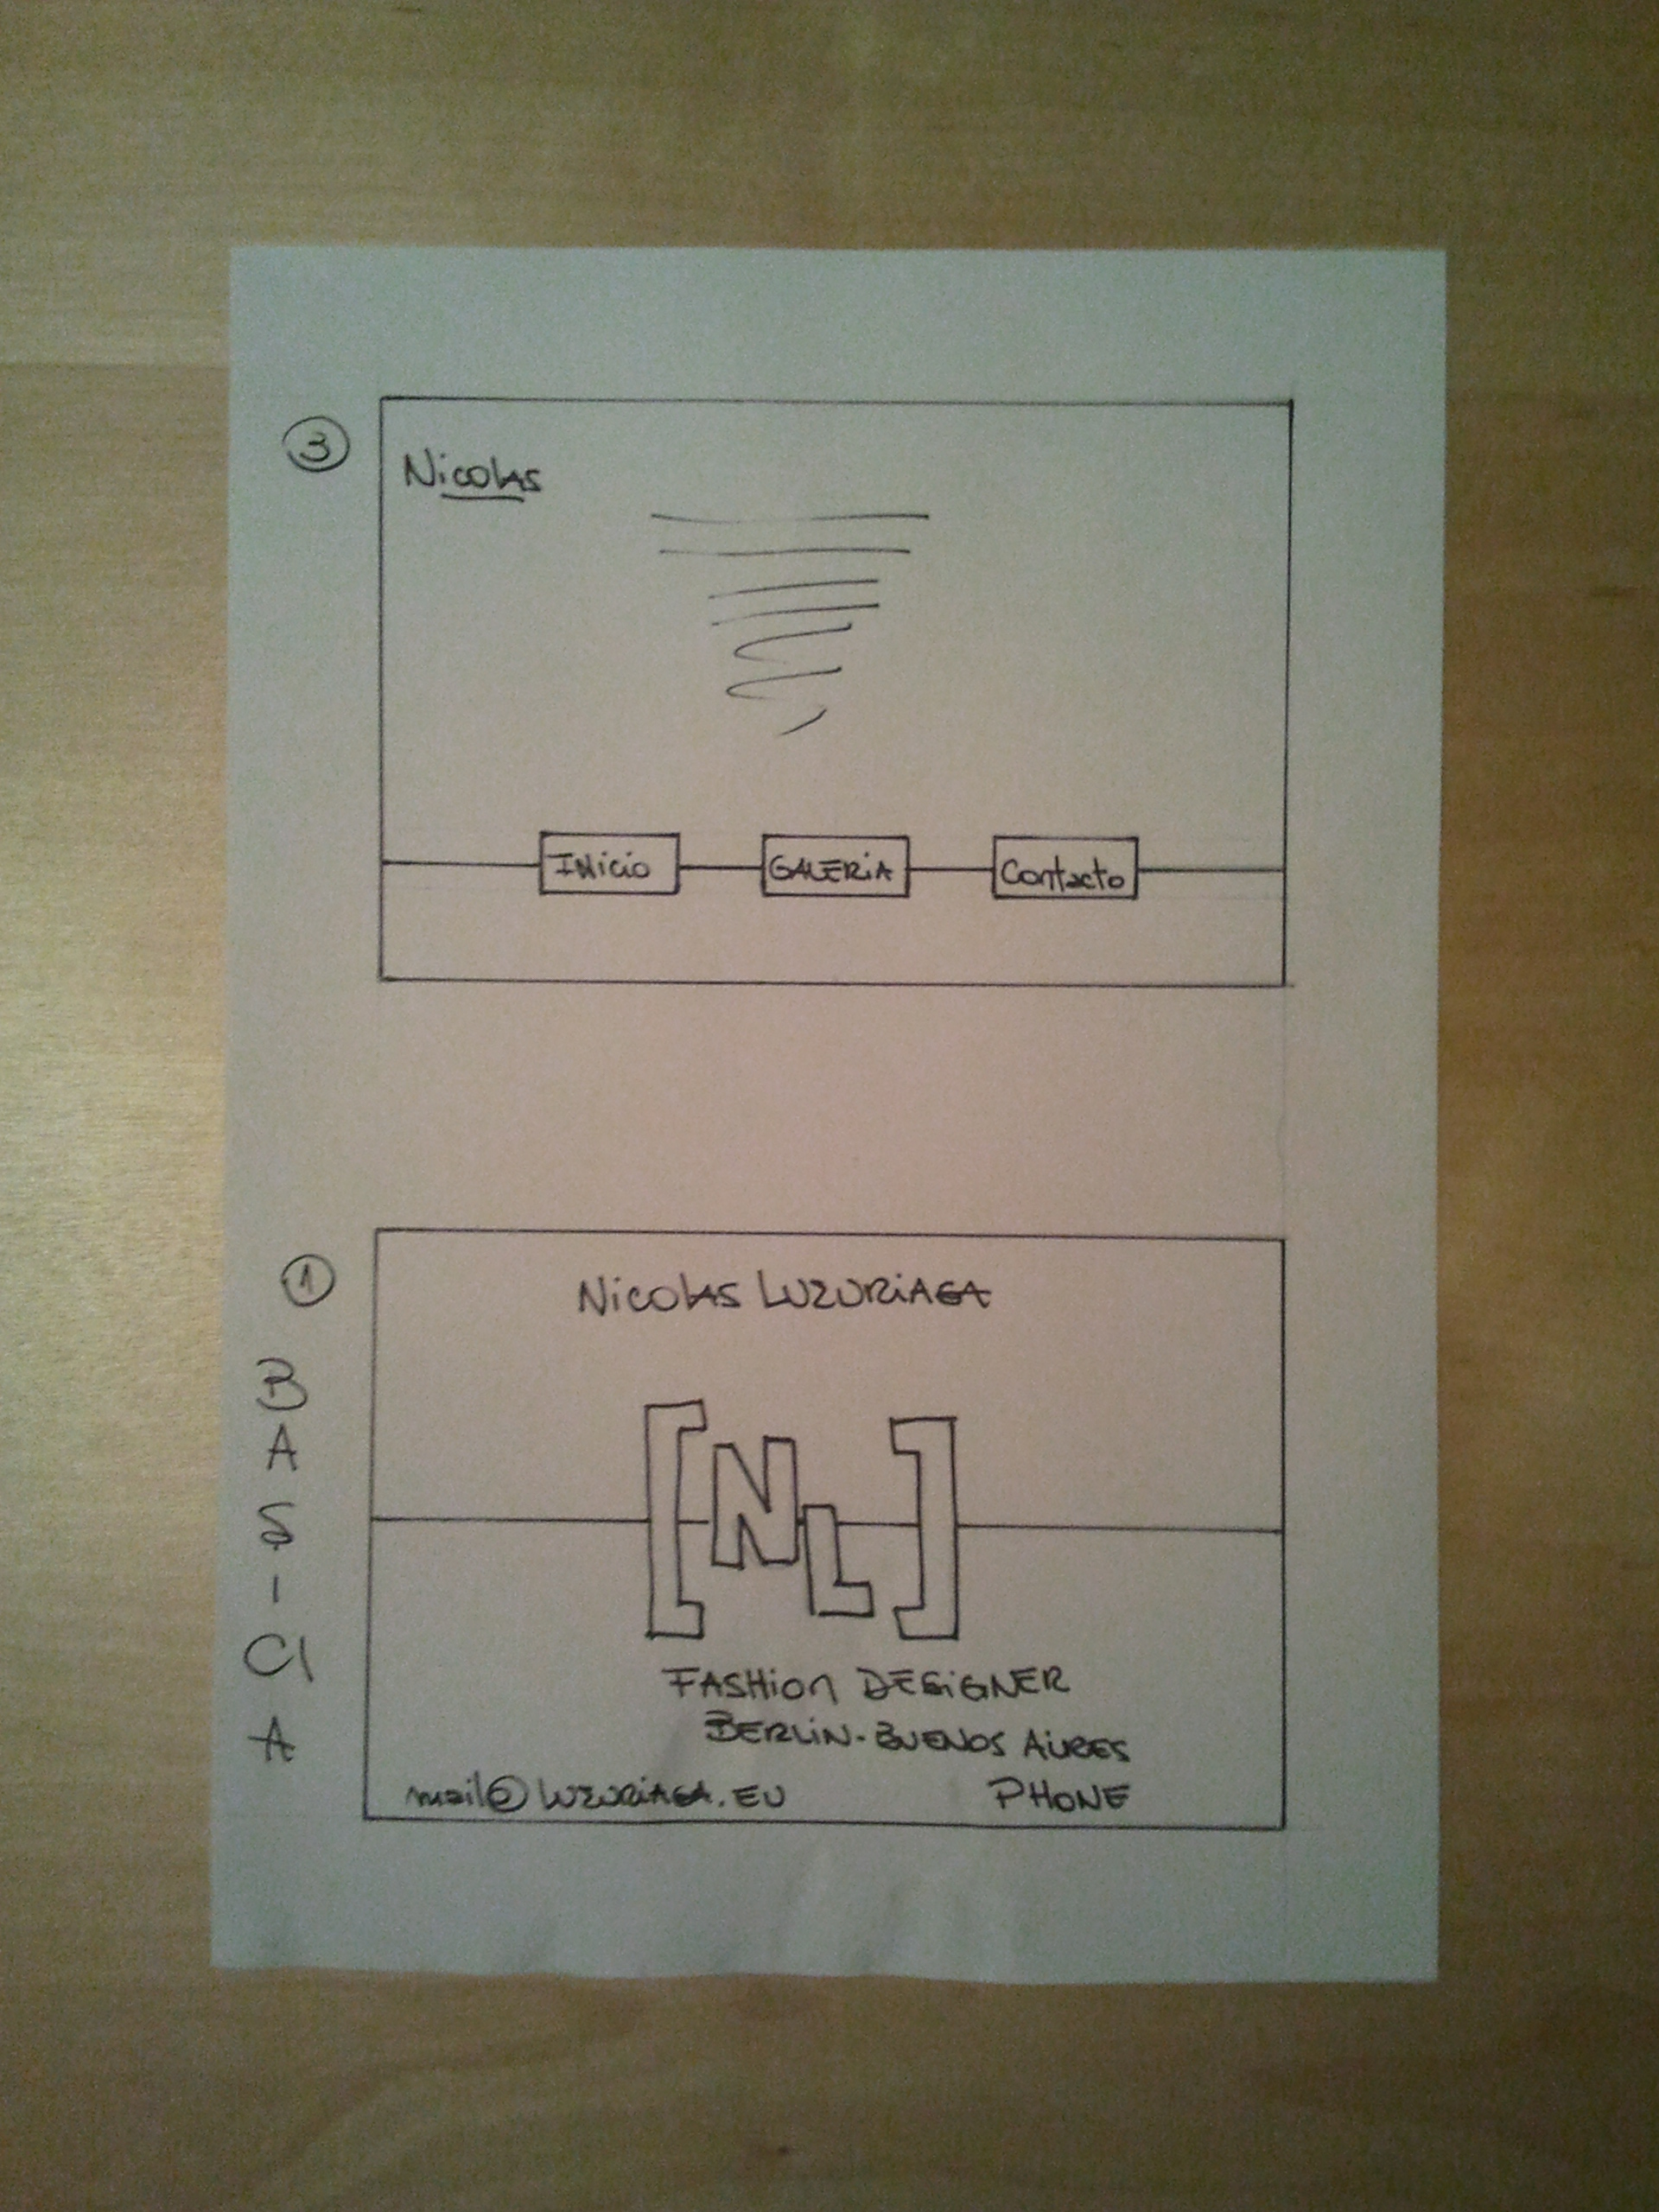 3
Nicolas
INicio
GALERIA
Contacto
1
BASICA
Nicolas LUZURiAGA
[NL]
FASHion DESiGNER
BERLiN-BUENOS AiRES
mail@LUZURiAGA.EU
PHONE